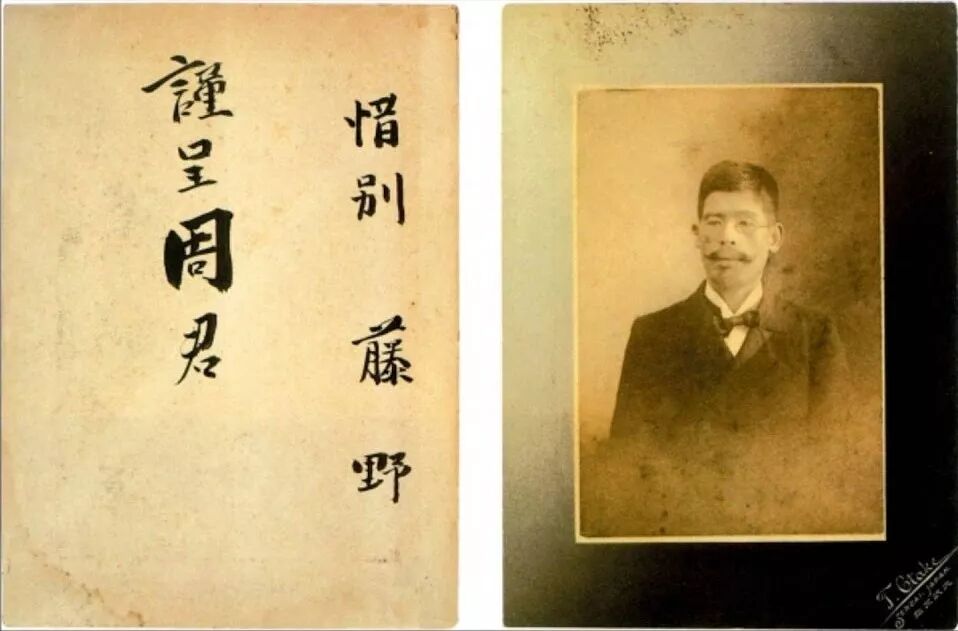 惜別 藤野
謹呈周君
T. Otake
Sendai, Japan